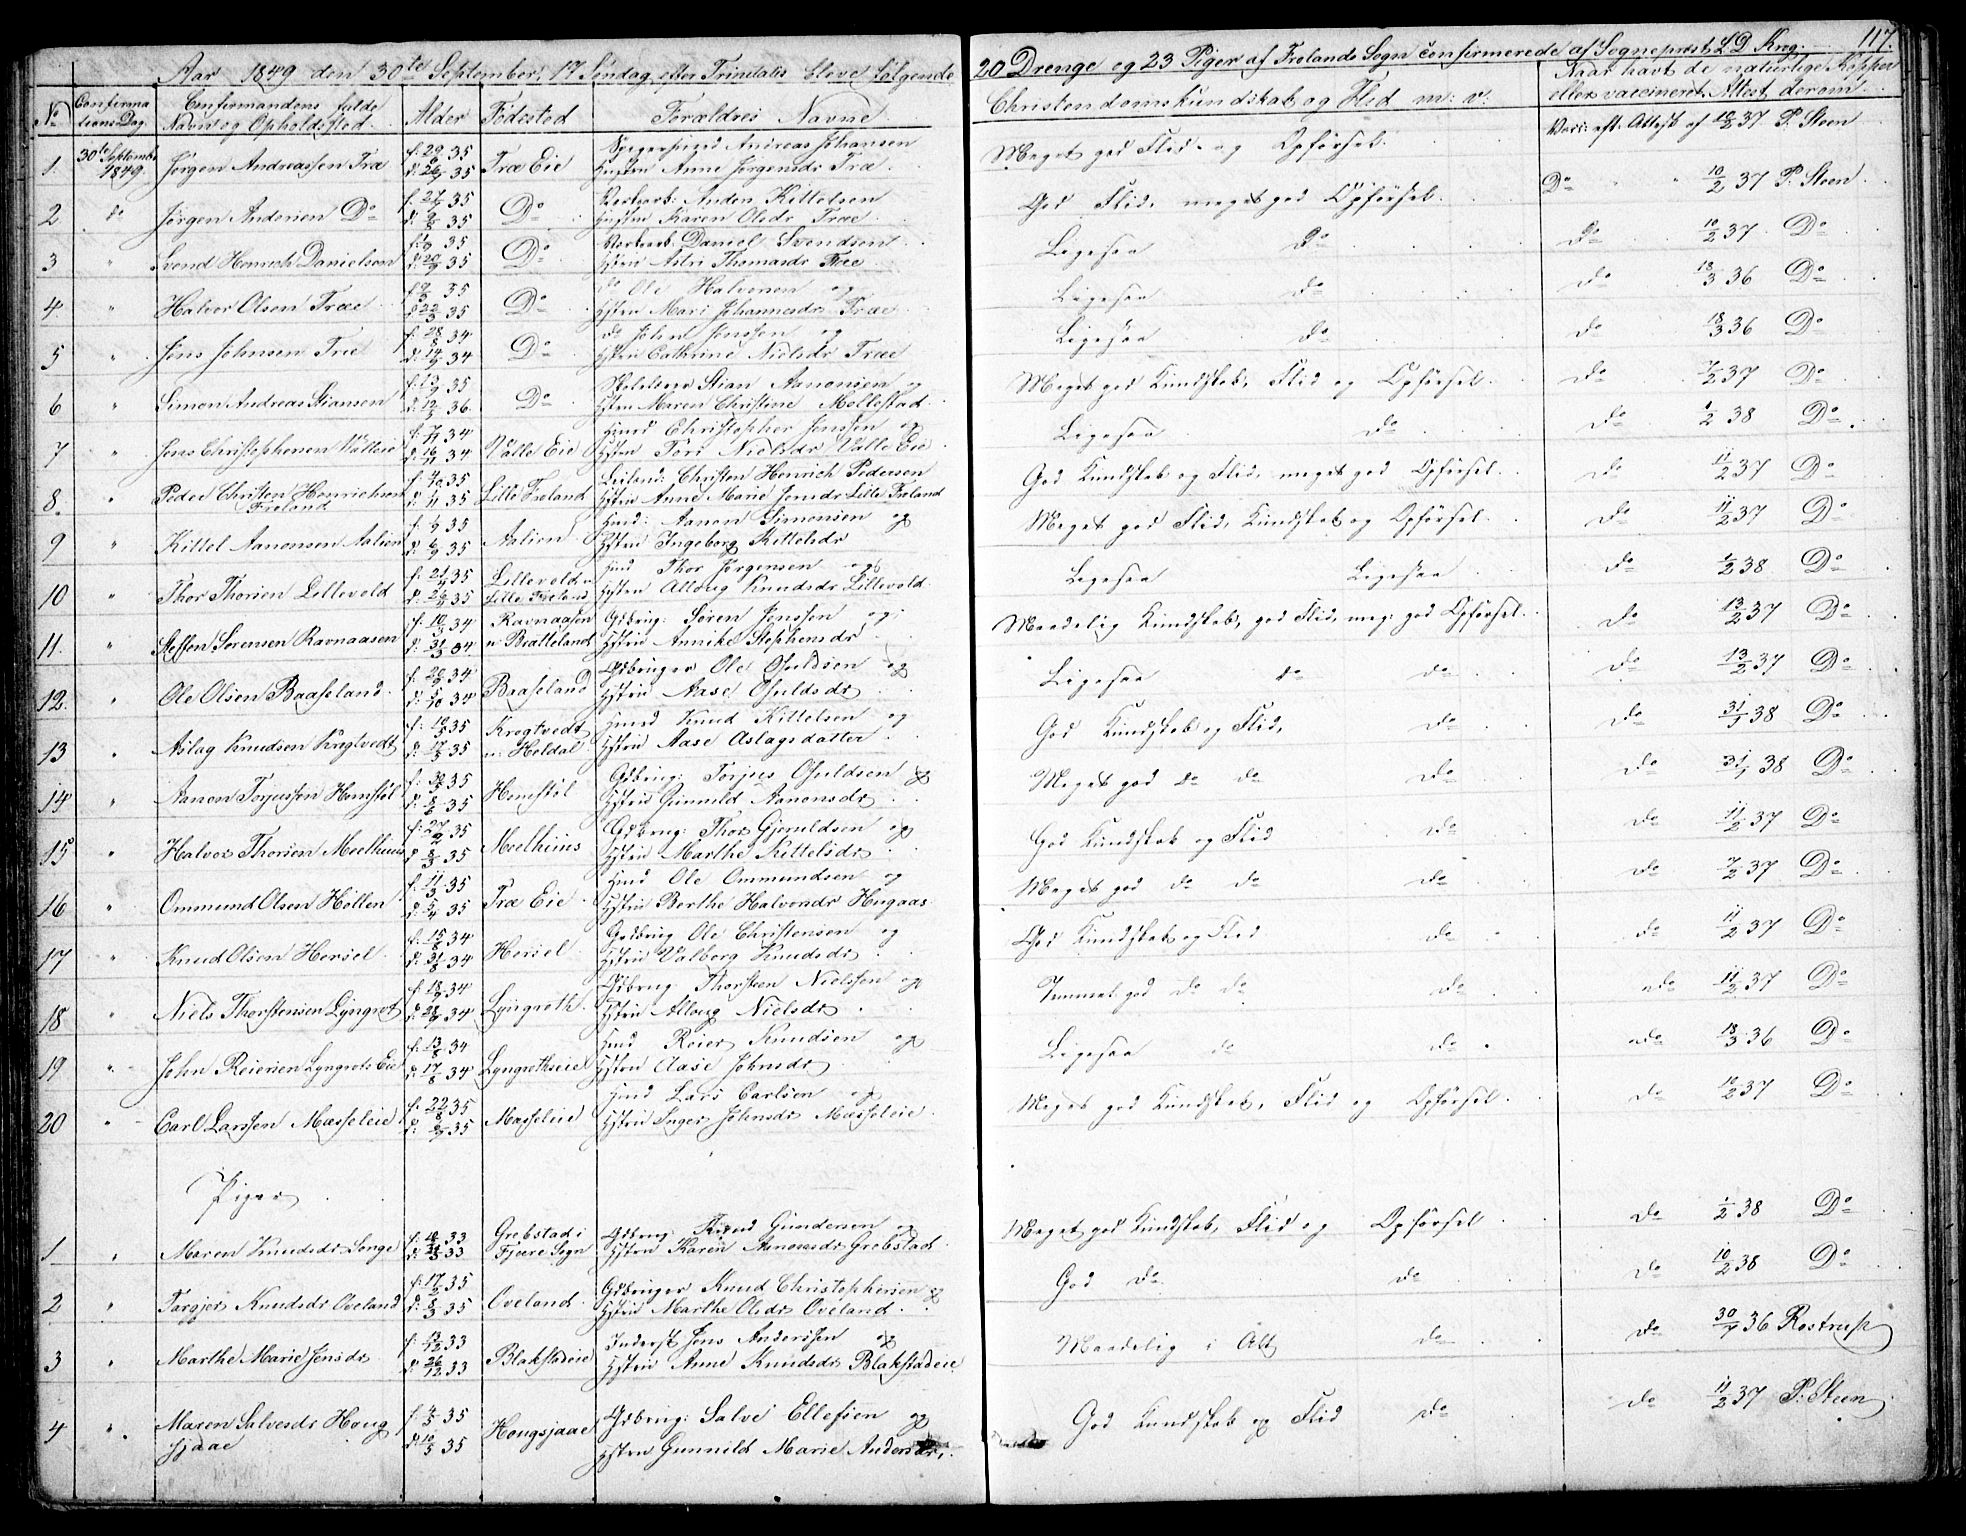 Aar 1849 den 30te September, 17 Søndag efter Trinitatis bleve følgende 20 Drenge og 23 Piger af Frolands Sogn confirmerede af Sognepræst L D Krog. 117.
No Confirmationsdag. Confirmandens fulde Navn og Opholdssted. Alder Fødested Forældres Navne Christendomskundskab og Flid m: v: Naar havt de naturlige Kopper eller vaccineret. Attest derom.
1. 30te Septembr 1849. Jørgen Andreassen Træ f: 35 d: 35 Træ Eie Andreas Johansen Hustru Anne Jørgensdr Træ. Meget god Flid og Opførsel. Vacc: eft. Attest af 10/2 37 P. Steen
2 do Jørgen Andersen Do f: 27 35 d: 35 Do Anden Kittelsen Hustru Karen Olsdr Træe. God Flid, meget god Opførsel. Do 10/2 37 P. Steen
3 " Svend Henrich Danielsen f: 35 d: 35 Do Daniel Svendsen Hstru Astri Thomasdr Træe Ligesaa Do do 10/2 37 Do
4 " Halvor Olsen Træe f: 35 d: 22/3 35 Do do Ole Halvorsen og Hstru Mari Johannesdr Træe Ligesaa do do 18/3 36 Do
5 " Jens Johnsen Træ f: 28/8 34 d: 14/9 34 Do do John Jenssen og Hstru Cathrine Nielsdr Træe Ligesaa do do 18/3 36 Do
6 " Simon Andreas Stiansen f: 35 d: 36 Do Stian Aanonsen og Hstru Maren Christine Møllestad Meget god Kundskab, Flid og Opførsel. do 7/2 37 Do
7 " Jens Christophersen Valleie f: 34 d: 16/11 34 Valle Eie Huusd Christopher Jenssen og Hstru Tori Nielsdr Valle Eie Ligesaa do do 1/2 38 Do
8. " Peder Christen Henrichsen Froland f: 4/10 35 d: 35 Lille Froland Leiland: Christen Henrich Pedersen Hstru Anne Marie Jensdr Lille Froland God Kundskab og Flid, meget god Opførsel. do 11/2 37 Do
9 " Kittel Aanonsen Aalien f: 35 d: 35 Aalien Huusd: Aanon Simonsen og Hstru Ingeborg Kittelsdr Meget god Flid, Kundskab og Opførsel. do 11/2 37 Do
10 " Thor Thorsen Lillevold f: 35 d: 35 Lillevold u: Lille Froland Huusd Thor Jørgensen og Hstru Alloug Knudsdr Lillevold Ligesaa Ligesaa do 1/2 38 Do
11. " Steffen Sørensen Ravnaasen f: 10/3 34 d: 31/3 34 Ravnaasen u: Bratteland Gdbrug: Søren Jenssen og Hstru Annike Stephensdr Maadelig Kundskab, god Flid, meg: god Opførsel. do 13/2 37 Do
12. " Ole Olsen Baaseland f: 34 d: 5/10 34 Baaseland Gdbruger Ole Osuldsen og Hstru Aase Osuldsdr Ligesaa do do do 13/2 37 Do
13 " Aslag Knudsen Krogtvedt f: 10/5 35 d: 17/5 35 Krogtvedt u: Heldal Huusd Knud Kittelsen og Hstru Aase Aslagsdatter God Kundskab og Flid, do do 31/1 38 Do
14 " Aanon Torjussen Hemstøl f: 35 d: 35 Hemstøl Gdbrug: Torjus Osuldsen og Hstru Gunnild Aanonsdr Meget god do do do do 31/1 38 Do
15 " Halvor Thorsen Moelhuus f: 27/2 35 d: 8/3 35 Moelhuus Gdbrug: Thor Gjeruldsen og Hstru Marthe Kittelsdr God Kundskab og Flid do do 11/2 37 Do
16 " Ommund Olsen Holten f: 11/3 35 d: 5/4 35 Træ Eie Huusd Ole Ommundsen og Hstru Berthe Halvorsdr Hugaas Meget god do do do do 7/2 37 Do
17 " Knud Olsen Hersel f: 15/8 34 d: 31/8 34 Hersel Gdbrug Ole Christensen og Hstru Valberg Knudsdr God Kundskab og Flid do do 11/2 37 Do
18 " Niels Thorstensen Lyngrot f: 18/9 34 d: 28/9 34 Lyngroth Gdbrug Thorsteen Nielssen og Hstru Alloug Nielsdr god do do do do 11/2 37 Do
19 " John Reiersen Lyngrots Eie f: 13/8 34 d: 17/8 34 Lyngrothseie Huusd Reier Knudsen og Hstru Aase Johnsdr Ligesaa do do do 18/3 36 Do
20 " Carl Larssen Mæsseleie f: 22 35 d: 35 Masseleie Huusd Lars Carlsen og Hstru Inger Johnsdr Mæsseleie Meget god Kundskab, Flid og Opførsel. do 10/2 37 Do
Piger
1 " Maren Knudsdr Longe f: 33 d: 33 Grebstad i Fjære Sogn Gdbrug. Knud Gundersen og Hstru Karen Aanonsdr Grebstad Meget god Kundskab, Flid og Opførsel do 1/2 38 Do
2 " Targjer Knudsdr Oveland f: 17/2 35 d: 8/3 35 Oveland Gdbruger Knud Christophersen og Hstru Marthe Olsdr Oveland God do do do 10/2 38 Do
3 " Marthe Marie Jensdr f: 13/12 33 d: 26/12 33 Blakstadeie Inderst Jens Anderssen og Hstru Anne Knudsdr Blakstadeie Maadelig i Alt do do 30/7 36 Rostrup
4 " Maren Salvesdr Hougsjaae f: 35 d: 10/5 35 Hougsjaae Gdbrug: Salve Ellefsen og Hstru Gunnild Marie Andersdr. God Kundskab og Flid do do 11/2 37 P. Steen